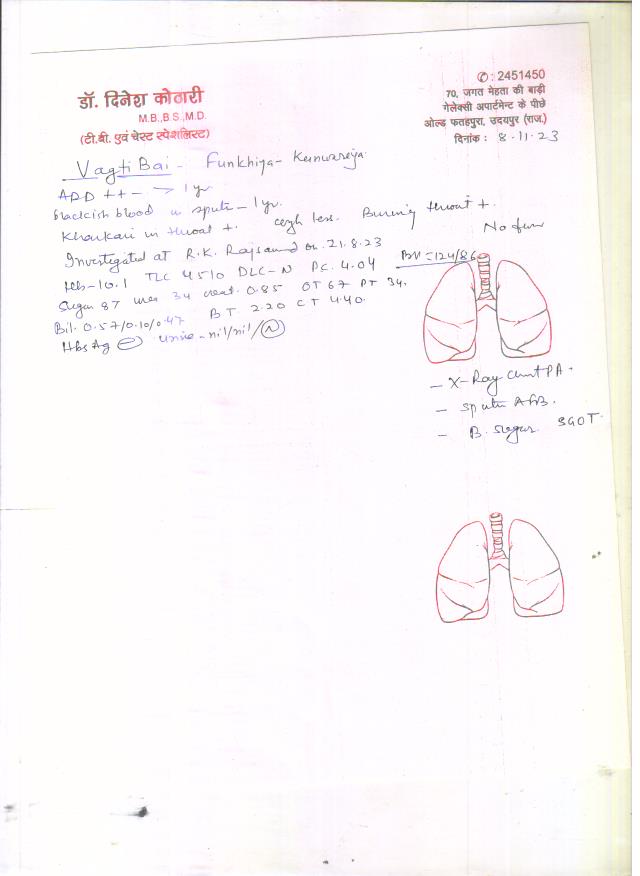 डॉ. दिनेश कोठारी
M.B.,B.S.,M.D.
(टी.बी. एवं चेस्ट स्पेशलिस्ट)
✆ : 2451450
70, जगत मेहता की बाड़ी
गेलेक्सी अपार्टमेन्ट के पीछे
ओल्ड फतहपुरा, उदयपुर (राज.)
दिनांक : 8.11.23
Vagti Bai - Funkhiya-
++ - → 1 yr
blackish blood in sputu - 1 yr.
in throat +. cough less. Burning throat +. No fever
Investigated at R.K. Rajsamand on. 21.8.23
BP = 124/86
Hb-10.1 TLC 4510 DLC-N PC. 4.04
Sugar 87 urea 34 creat. 0.85 OT 67 PT 34.
Bil. 0.57/0.10/0.47 BT 2.20 CT 4.40.
HbsAg ⊖ urine - nil/nil/Ⓝ
- X-Ray Chest PA.
- Sputu AFB.
- B. Sugar. SGOT.